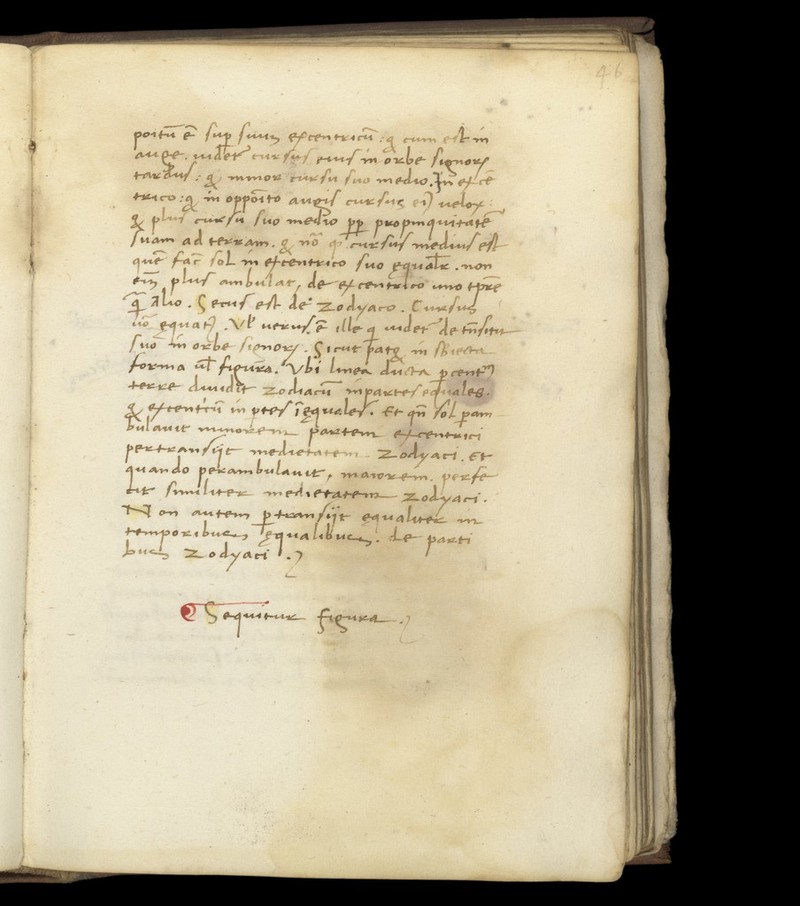 46
poitū ē sup̱ suum excentricū: q̨ cum est in
auge. uidet᷑ cursus eius in orbe signoꝝ
tardus: q̨ minor cursu suo medio. In excē
trico: q̨ in oppōito augis cursus eiꝰ velox:
q̨ plus cursu suo medio pp̱ propinquitatē
suam ad terram. cursus medius est
quē fac̄ sol in excentrico suo equalr̄. non
eīm plus ambulat, de excentrico uno tp̄re
q̄ alio. Secus est de Zodyaco. Cursus
uō equatꝰ. Vl̓ verus. ē ille q̱ uidet᷑ de
suo in orbe signoꝝ. Sicut patꝫ in sbiecta
forma ul̄ figura. Vbi linea ducta p̱ centꝝ
terre diuidit zodiacū in partes equales.
q̨ excent'cū in p̱tes īequales. Et qn̄ sol p̱am
bulauit minorem partem excentrici
pertransijt medietatem Zodyaci. Et
quando perambulauit, maiorem. perfe
cit similiter medietatem Zodyaci.
Non autem p̱transijt equaliter in
temporibus equalibus. de parti
bus Zodyaci.
Sequitur figura.